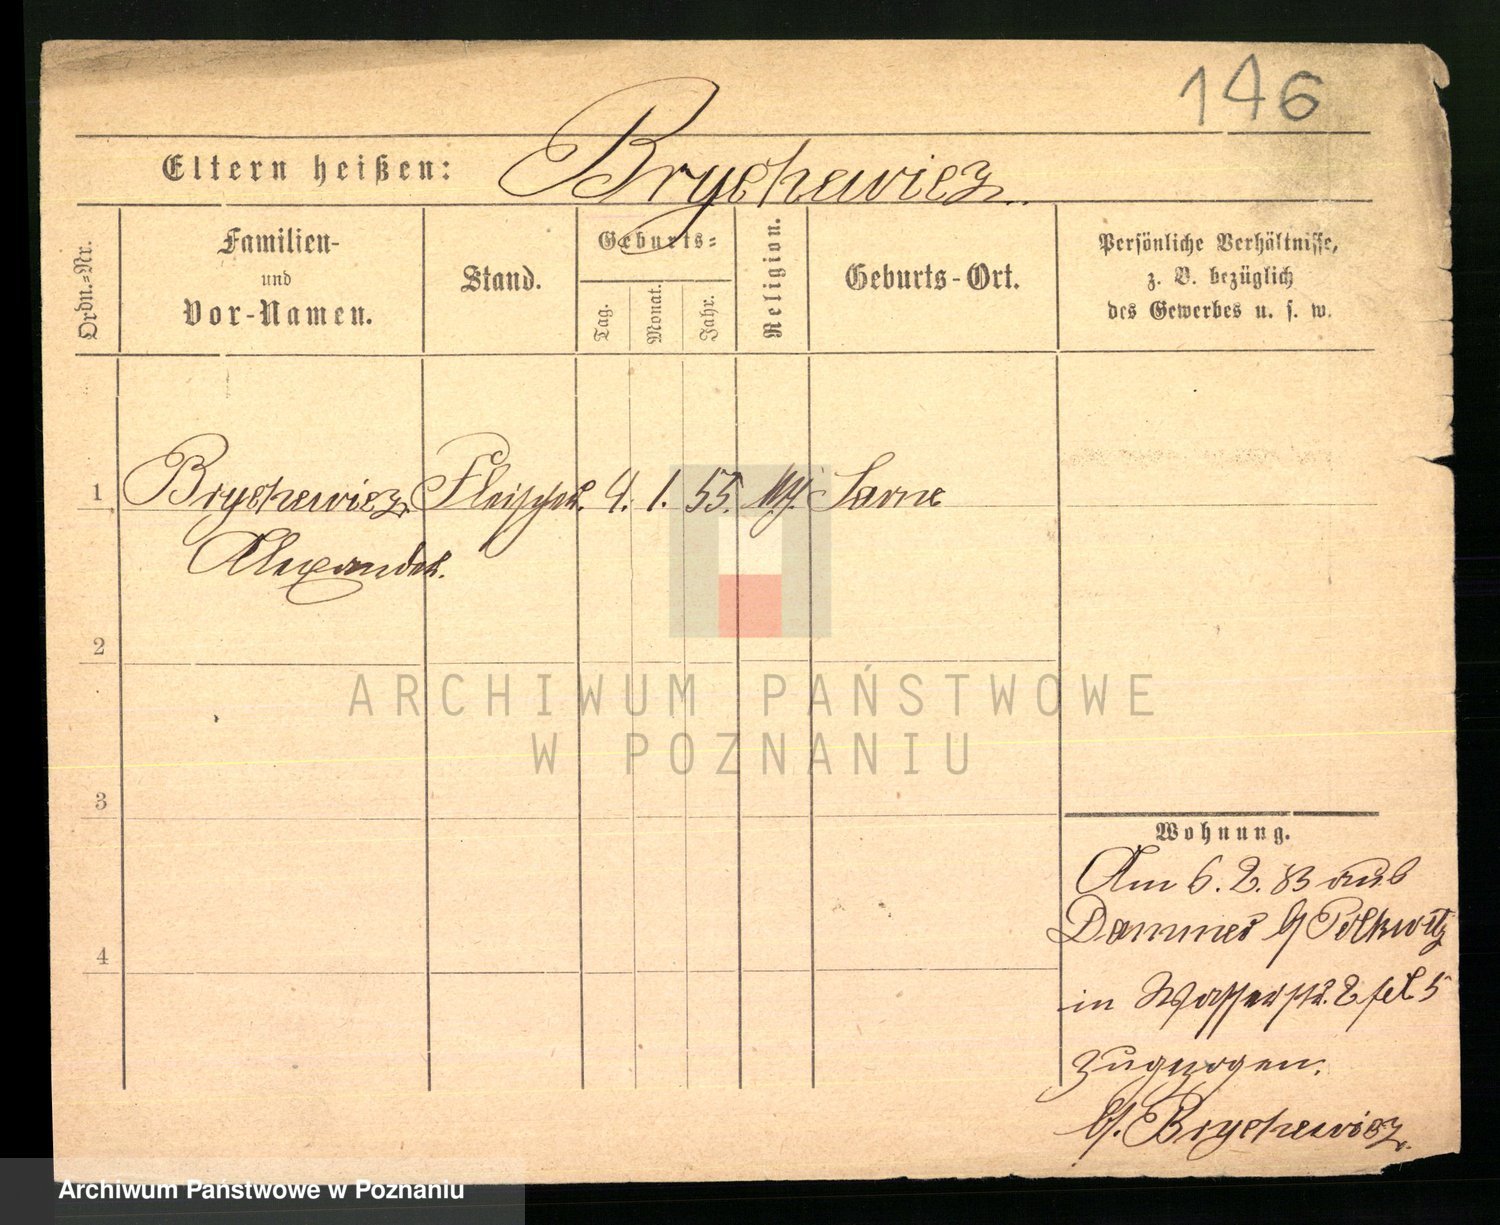 146
Eltern heißen: Brychewicz.
Ordn.-Nr.
Familien-
und
Vor-Namen.
Stand.
Geburts-
Tag.
Monat.
Jahr.
Religion.
Geburts-Ort.
Persönliche Verhältnisse,
z. B. bezüglich
des Gewerbes u. s. w.
1 Brychewicz Fleischer. 4. 1. 55. Sarne
Alexander.
2
ARCHIWUM PAŃSTWOWE
W POZNANIU
3
Wohnung.
Am 6. 2. 83 aus
Dammer b/ Polkwitz
4
in Wasserstr. 2 bei
zugezogen.
Brychewicz
Archiwum Państwowe w Poznaniu